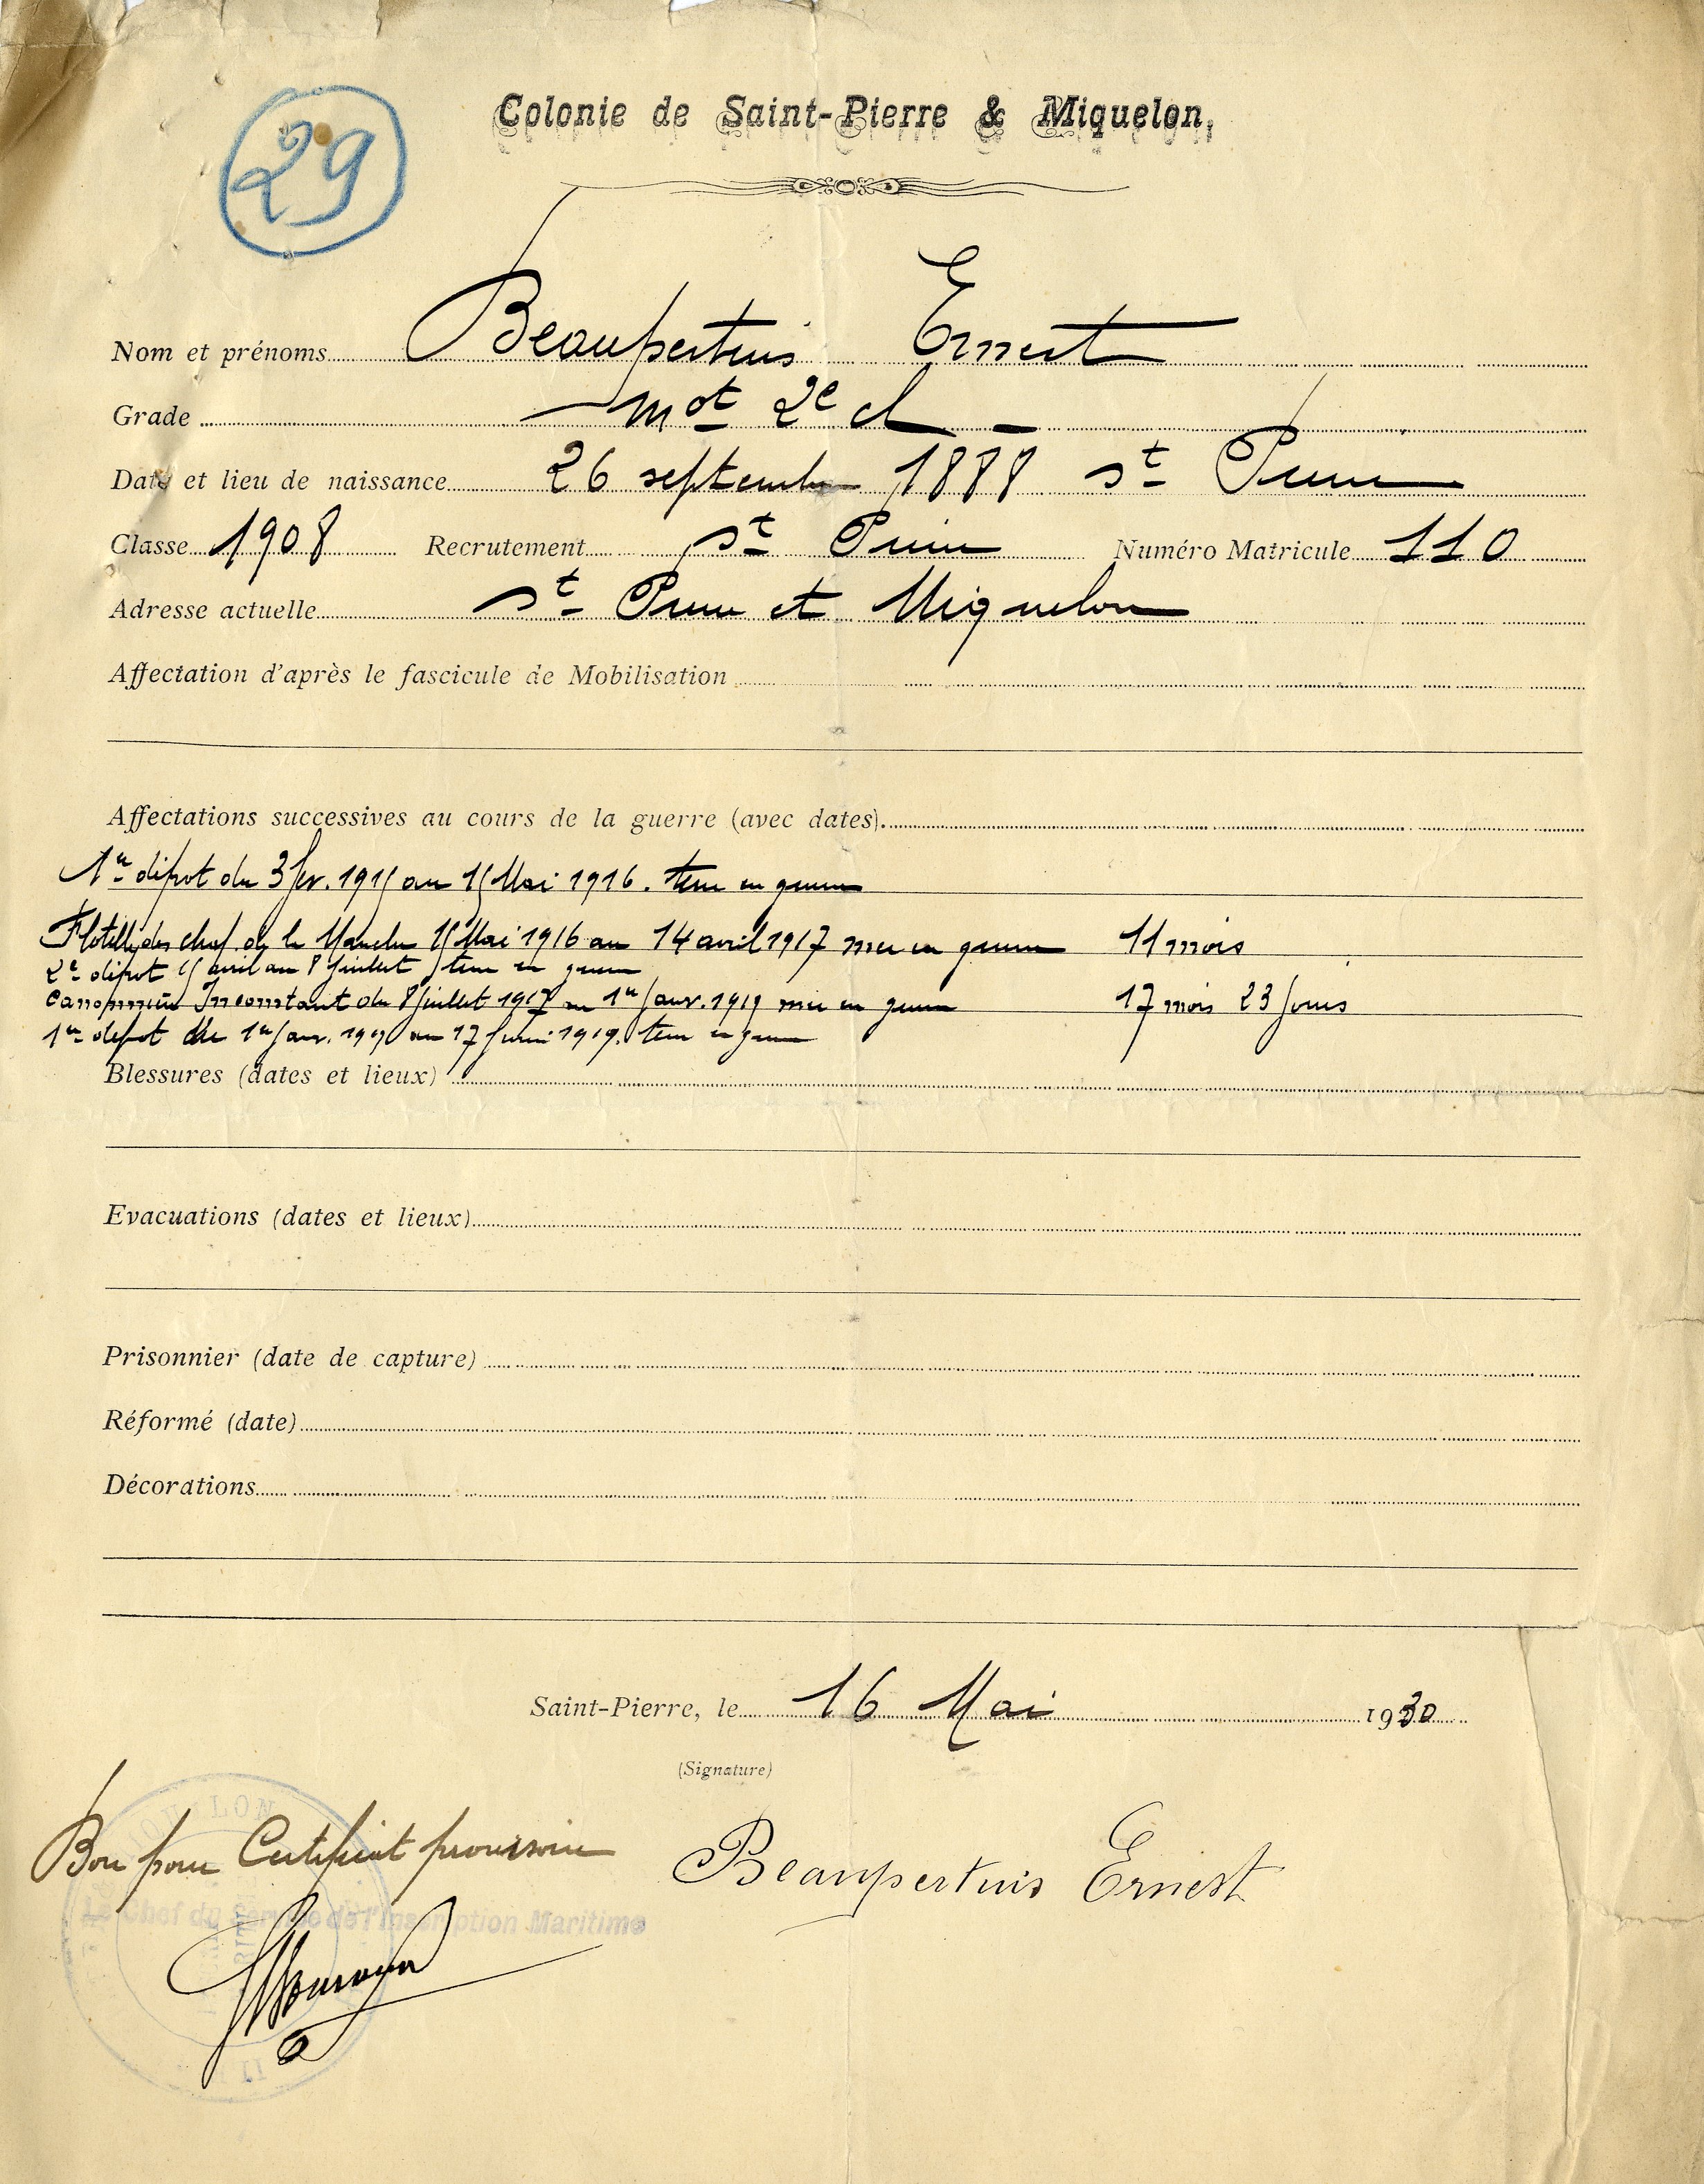 29
Colonie de Saint-Pierre & Miquelon,
Nom et prénoms Beaupertuis Ernest
Grade mot 2e cl
Date et lieu de naissance 26 septembre 1888 st Pierre
Classe 1908 Recrutement st Pierre Numéro Matricule 110
Adresse actuelle st Pierre et Miquelon
Affectation d'après le fascicule de Mobilisation
Affectations successives au cours de la guerre (avec dates).
1er dépot du 3 fev. 1915 au 15 Mai 1916. terre en guerre
Flotille des de la Manche 15 Mai 1916 au 14 avril 1917 mer en guerre 11 mois
2e dépot 15 avril au 8 juillet terre en guerre
Canonnière Inconstant du 8 juillet 1917 au 1er janv. 1919 mer en guerre 17 mois 23 jours
1er depot du 1er janv. 1919 au 17 1919. terre en guerre
Blessures (dates et lieux)
Evacuations (dates et lieux)
Prisonnier (date de capture)
Réformé (date)
Décorations
Saint-Pierre, le 16 Mai 1930
(Signature)
Bon pour Certificat provisoire
Beaupertuis Ernest
Le Chef du Service de l'Inscription Maritime